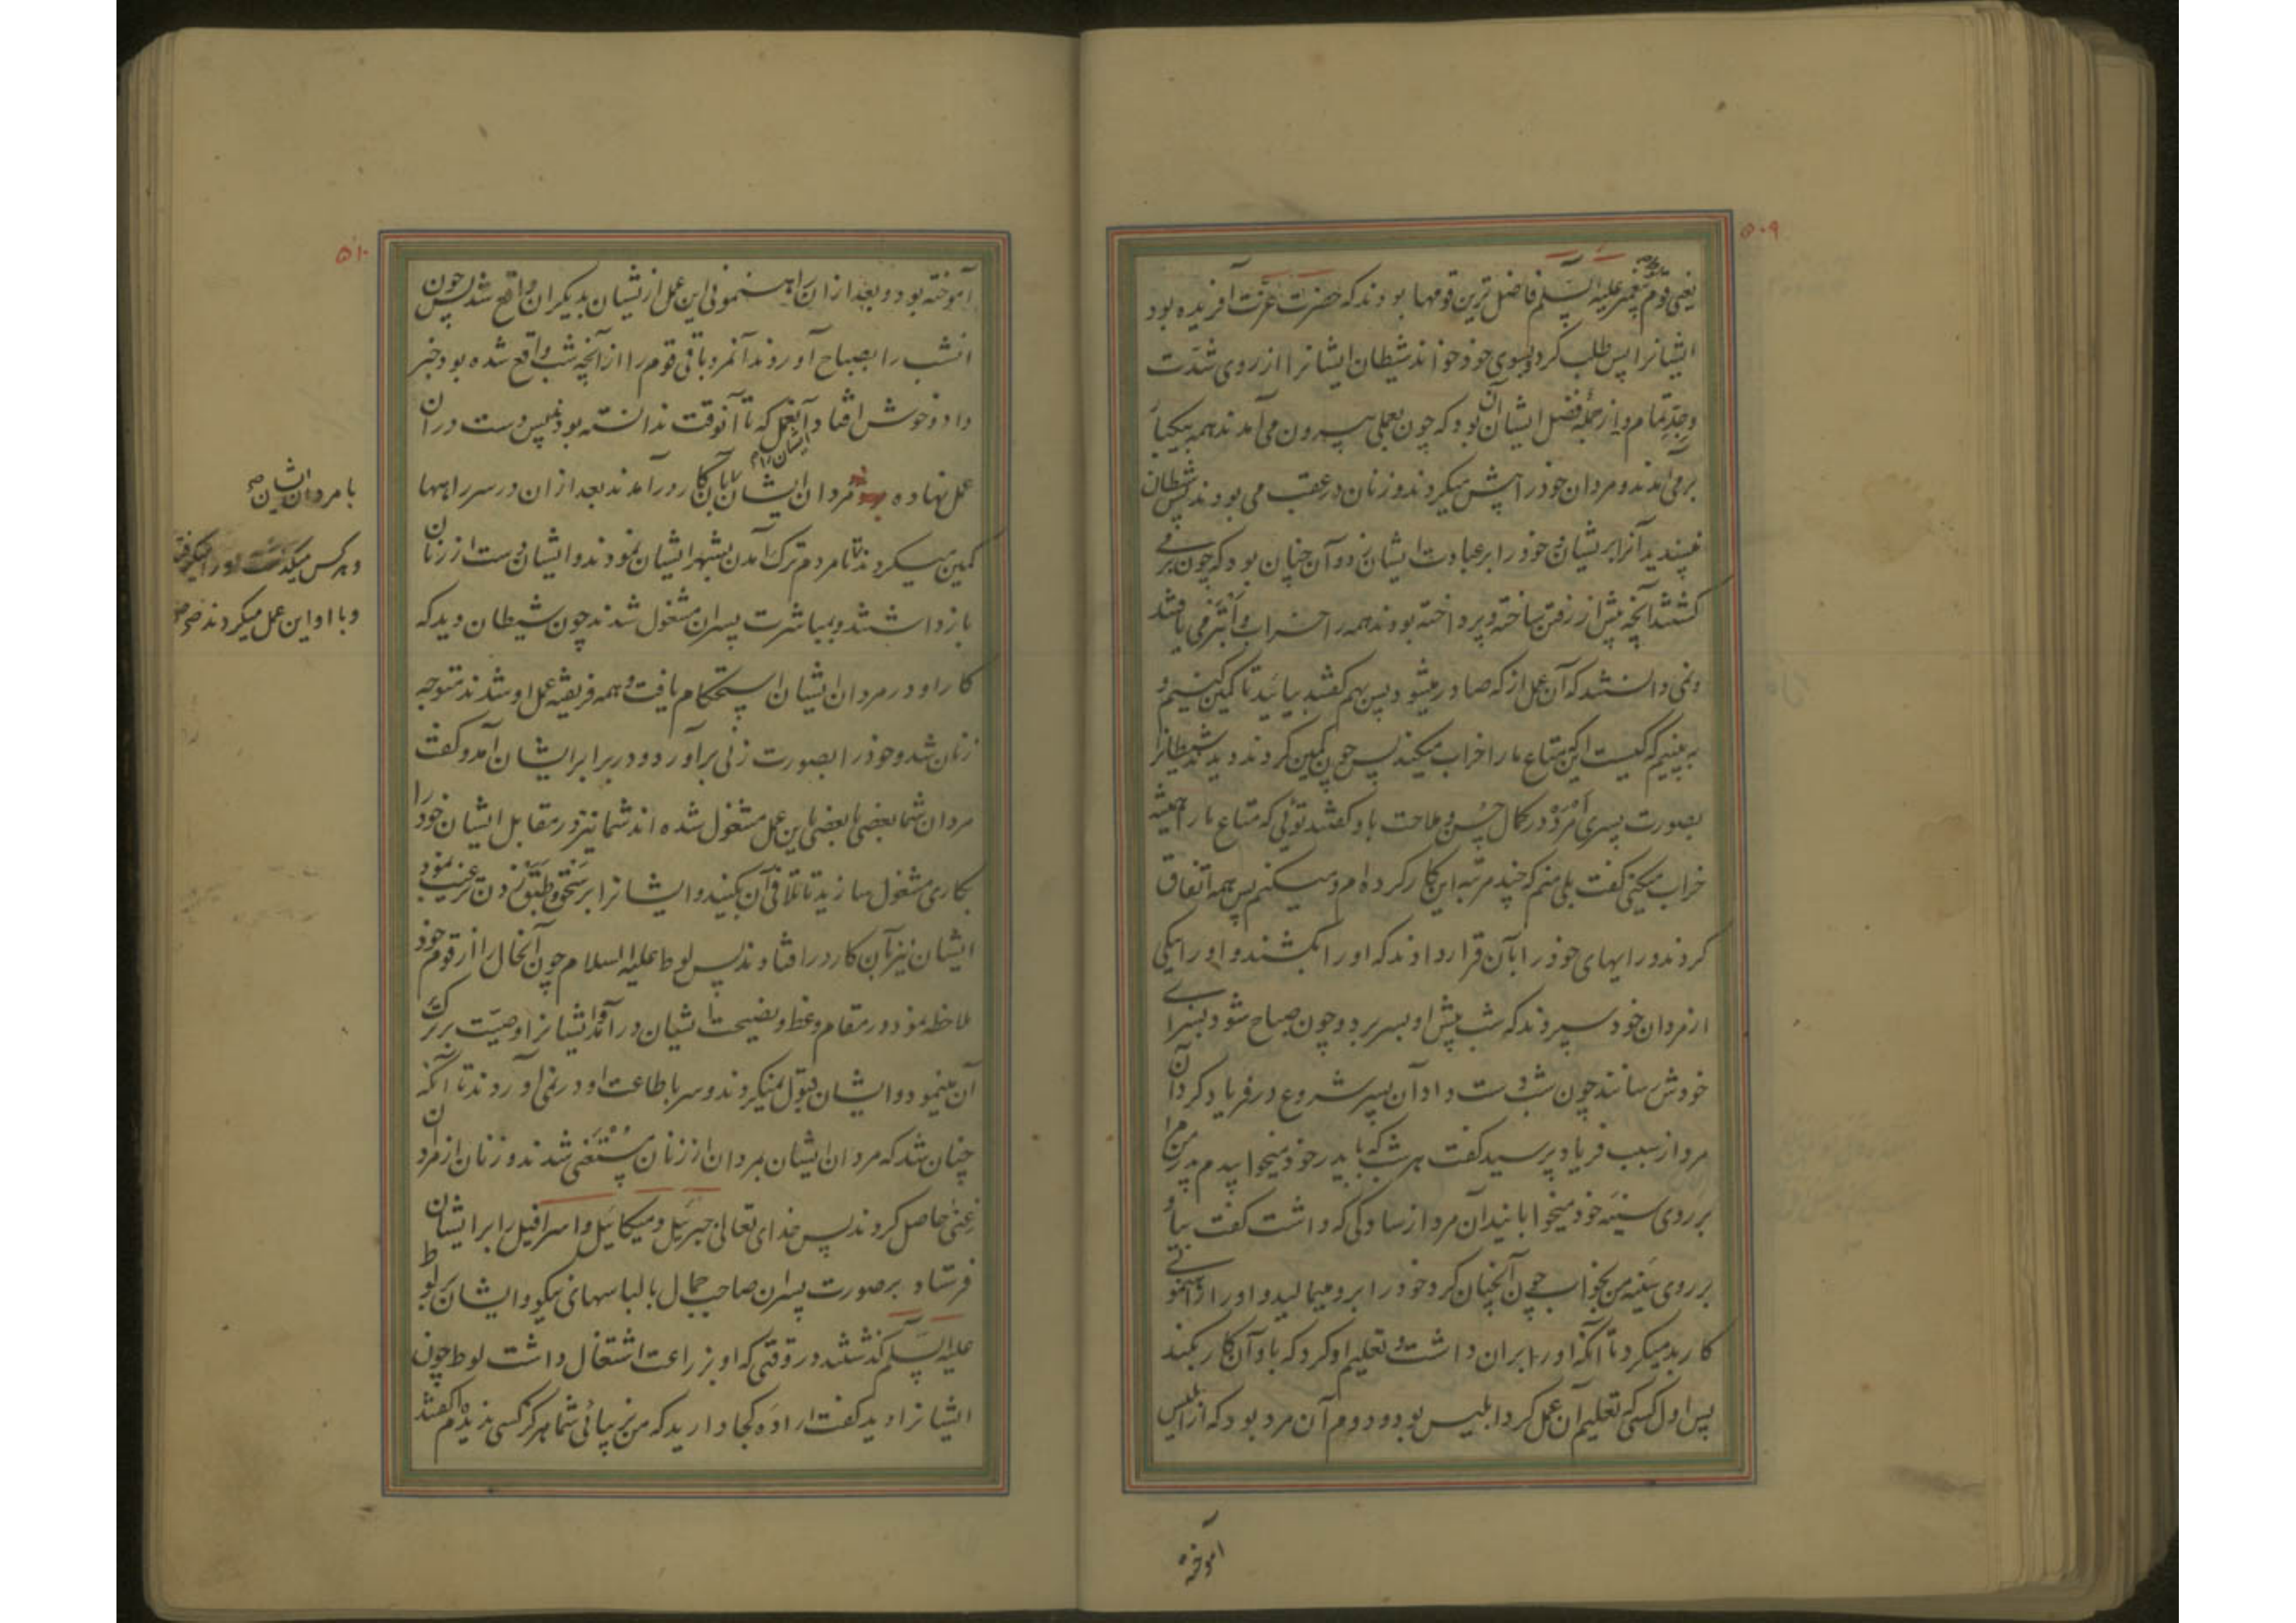 ۵۰۹
یعنی قوم پیغمبر علیه السلم فاضل ترین قومها بودند که حضرت عزت آفریده بود
ایشانرا پس طلب کرد و بسوی خود خواند شیطان ایشانرا از روی شدت
وجد تمام و از جمله فضل ایشان آن بود که چون بعملی بیرون می آمدند همه بیکبار
برمی آمدند و مردان خود را پیش میکردند و زنان در عقب می بودند پس شیطان
نپسندید آنرا بریشان خود را بر عبادت ایشان زد و آن چنان بود که چون برمی
کشتند آنچه پیش از رفتن ساخته و پرداخته بودند همه را خراب و ابتر می یافتند
و نمی دانستند که آن عمل از که صادر میشود پس بهم کفتند بیائید تا کمین کنیم و
به بینیم که کیست اینکه متاع ما را خراب میکند پس چون کمین کردند دیدند شیطانرا
بصورت پسری امرد در کمال حسن و ملاحت باو کفتند توئی که متاع ما را همیشه
خراب میکنی کفت بلی منم که چند مرتبه این کار کرده ام و میکنم پس همه اتفاق
کردند و رایهای خود را بآن قرار دادند که او را بکشند و او را بیکی
از مردان خود سپردند که شب پیش او بسر برد و چون صباح شود بسزای
خودش رسانند چون شب دست داد آن پسر شروع در فریاد کرد آن
مرد از سبب فریاد پرسید کفت هر شب که با پدر خود میخوابیدم پدر من مرا
بر روی سینه خود میخوابانید آن مرد از سادکی که داشت کفت بیا و
بر روی سینه من بخواب چون آنچنان کرد خود را برو میمالید و او را راهنمونی
کار بد میکرد تا آنکه او را بران داشت و تعلیم او کرد که باو آن کار بکند
پس اول کسی که تعلیم آن عمل کرد ابلیس بود و دوم آن مرد بود که از ابلیس
آموخته
۵۱۰
آموخته بود و بعد از ان راهنمونی این عمل از یشان بدیکران واقع شد پس چون
انشب را بصباح آوردند آنمرد باقی قوم را از آنچه شب واقع شده بود خبر
داد و خوش افتاد آنعمل که تا آنوقت ندانسته بودند پس دست دران
عمل نهاده مردان ایشان بآن کار درآمدند بعد از ان در سر راهها
با مردان ایشان
کمین میکردند تا مردم ترک آمدن بشهر ایشان نمودند و ایشان دست از زنان
و هر کس میکذشت او را میکرفتند
بازداشتند و بمباشرت پسران مشغول شدند چون شیطان دید که
و با او این عمل میکردند
کار او در مردان ایشان استحکام یافت و همه فریفته عمل او شدند متوجه
زنان شد و خود را بصورت زنی برآورد و در برابر ایشان آمد و کفت
مردان شما بعضی با بعضی باین عمل مشغول شده اند شما نیز در مقابل ایشان خود را
بکاری مشغول سازید تا تلافی آن بکنید و ایشانرا بر سحق و طبق زدن ترغیب نمود
ایشان نیز بآن کار در افتادند پس لوط علیه السلام چون آنحال را از قوم خود
ملاحظه نمود در مقام وعظ و نصیحت ایشان درآمد و ایشانرا وصیت بر ترک
آن مینمود و ایشان قبول نمیکردند و سر باطاعت او در نمی آوردند تا آنکه
چنان شد که مردان ایشان بمردان از زنان مستغنی شدند و زنان از مردان
غنی حاصل کردند پس خدای تعالی جبرئیل و میکائیل و اسرافیل را بر ایشان
فرستاد بر صورت پسران صاحب جمال با لباسهای نیکو و ایشان بر لوط
علیه السلم کذشتند در وقتی که او بزراعت اشتغال داشت لوط چون
ایشانرا دید کفت اراده کجا دارید که من بزیبائی شما هرکز کسی ندیده ام کفتند